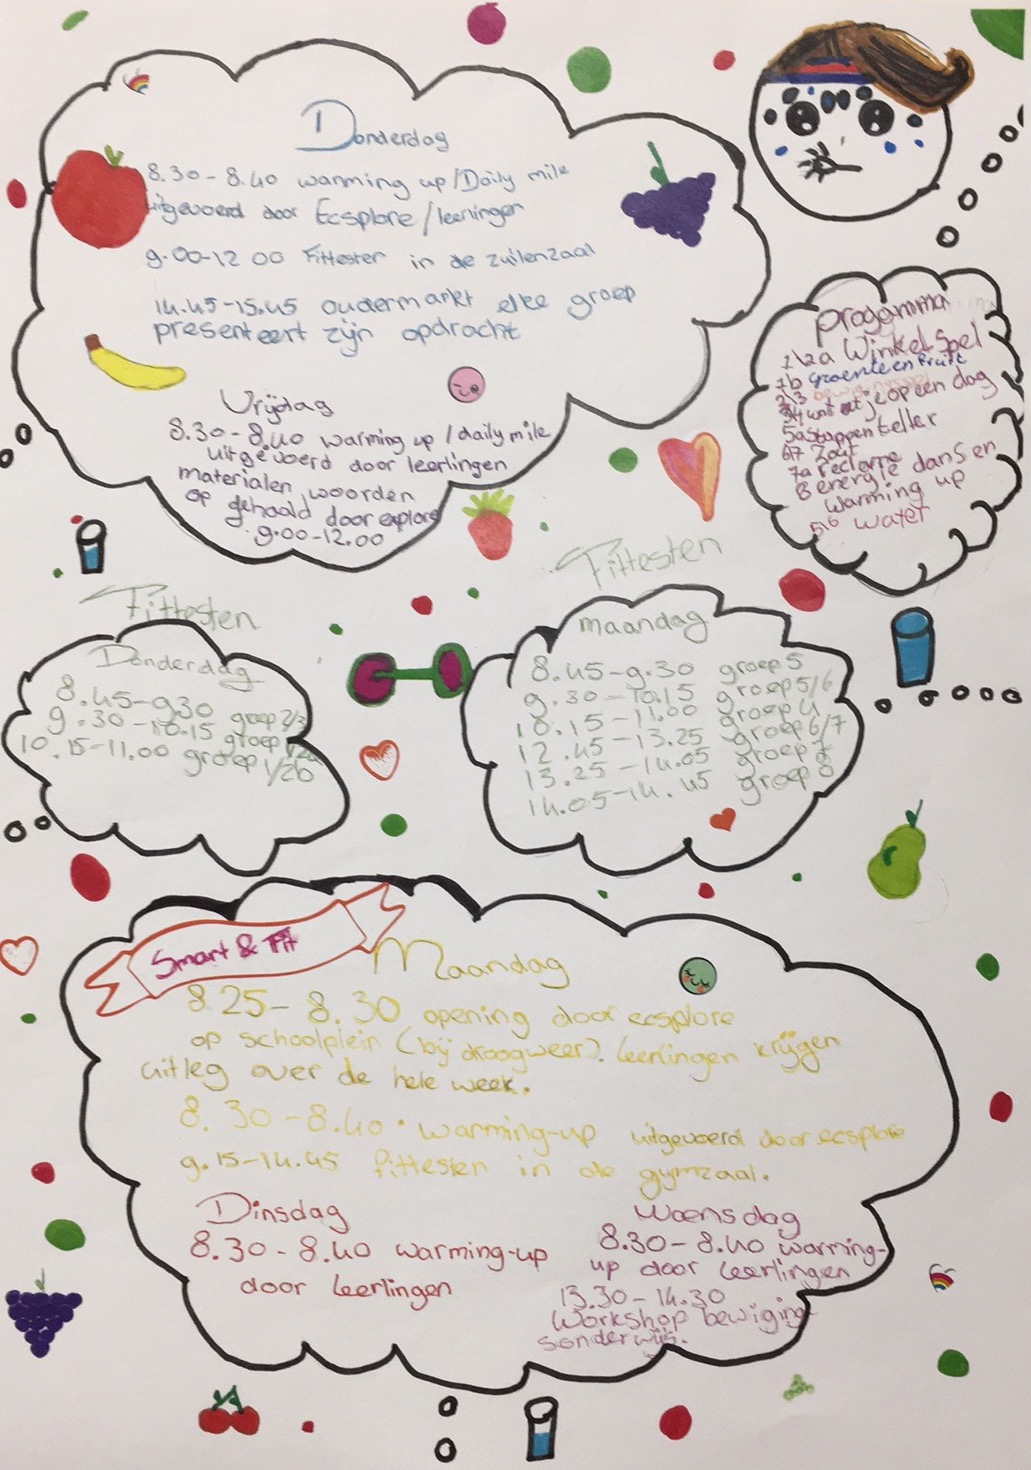 Donderdag
8.30 - 8.40 warming up / Daily mile
uitgevoerd door Ecsplore / leeningen
9.00-12 00 Fittesten in de zuilenzaal
14.45-15.45 oudermarkt elke groep
presenteert zijn opdracht
Vrijdag
8.30 - 8.40 warming up / daily mile
uitgevoerd door leerlingen
materialen woorden
op gehaald door explore
9.00-12.00
progamma
1\2a Winkelspel
1b groente en fruit
2\3
34 wat eet je op een dag
5a Stappenteller
67 Zout
7a reclame
8 energie dans en
warming up
56 water
Fittesten
Donderdag
8.45-9.30 groep 2/3
9.30-10.15 groep 1/2a
10.15-11.00 groep 1/2b
Fittesten
maandag
8.45-9.30 groep 5
9.30-10.15 groep 5/6
10.15-11.00 groep 4
12.45-13.25 groep 6/7
13.25-14.05 groep 7
14.05-14.45 groep 8
Smart & Fit
Maandag
8.25 - 8.30 opening door ecsplore
op schoolplein (bij droogweer). leerlingen krijgen
uitleg over de hele week.
8.30 - 8.40 • warming-up uitgevoerd door ecsplore
9.15-14.45 fittesten in de gymzaal.
Dinsdag
8.30 - 8.40 warming-up
door leerlingen
Woensdag
8.30 - 8.40 warming-
up door leerlingen
13.30 - 14.30
Workshop beweging
sonderwijs.